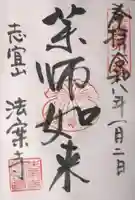 奉拝 令和八年一月二日
薬師如来
志宜山
法案寺